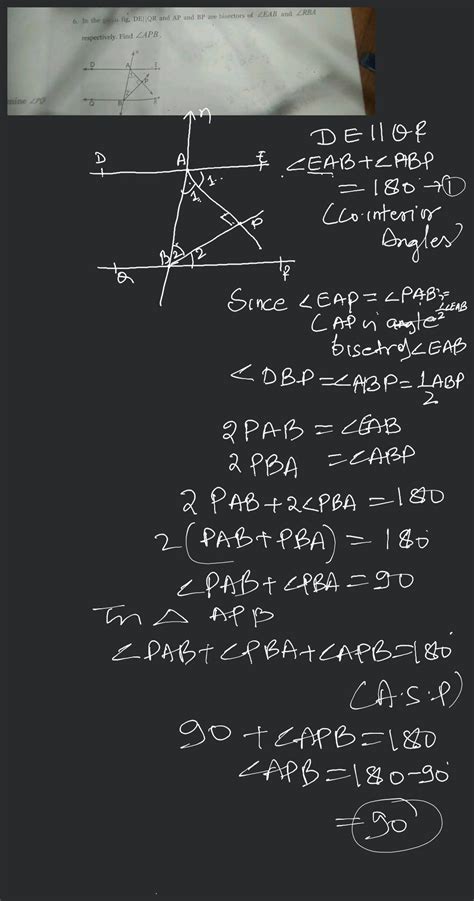 6. In the given fig, DE||QR and AP and BP are bisectors of ∠EAB and ∠RBA
respectively. Find ∠APB.
n
D A E
P
Q B R
mine ∠PQ
n
D A E
1.
1.
P
B 2 2
Q R
DE||QR
∠EAB+∠ABP
=180→①
(Co-interior
Angles)
Since ∠EAP=∠PAB=½∠EAB
(AP is angle
bisectrof∠EAB
∠DBP=∠ABP=1ABP
2
2PAB=∠EAB
2PBA =∠ABP
2PAB+2∠PBA=180
2(PAB+PBA)=180
∠PAB+∠PBA=90
In △ APB
∠PAB+∠PBA+∠APB=180
(A.S.P)
90+∠APB=180
∠APB=180-90
=90